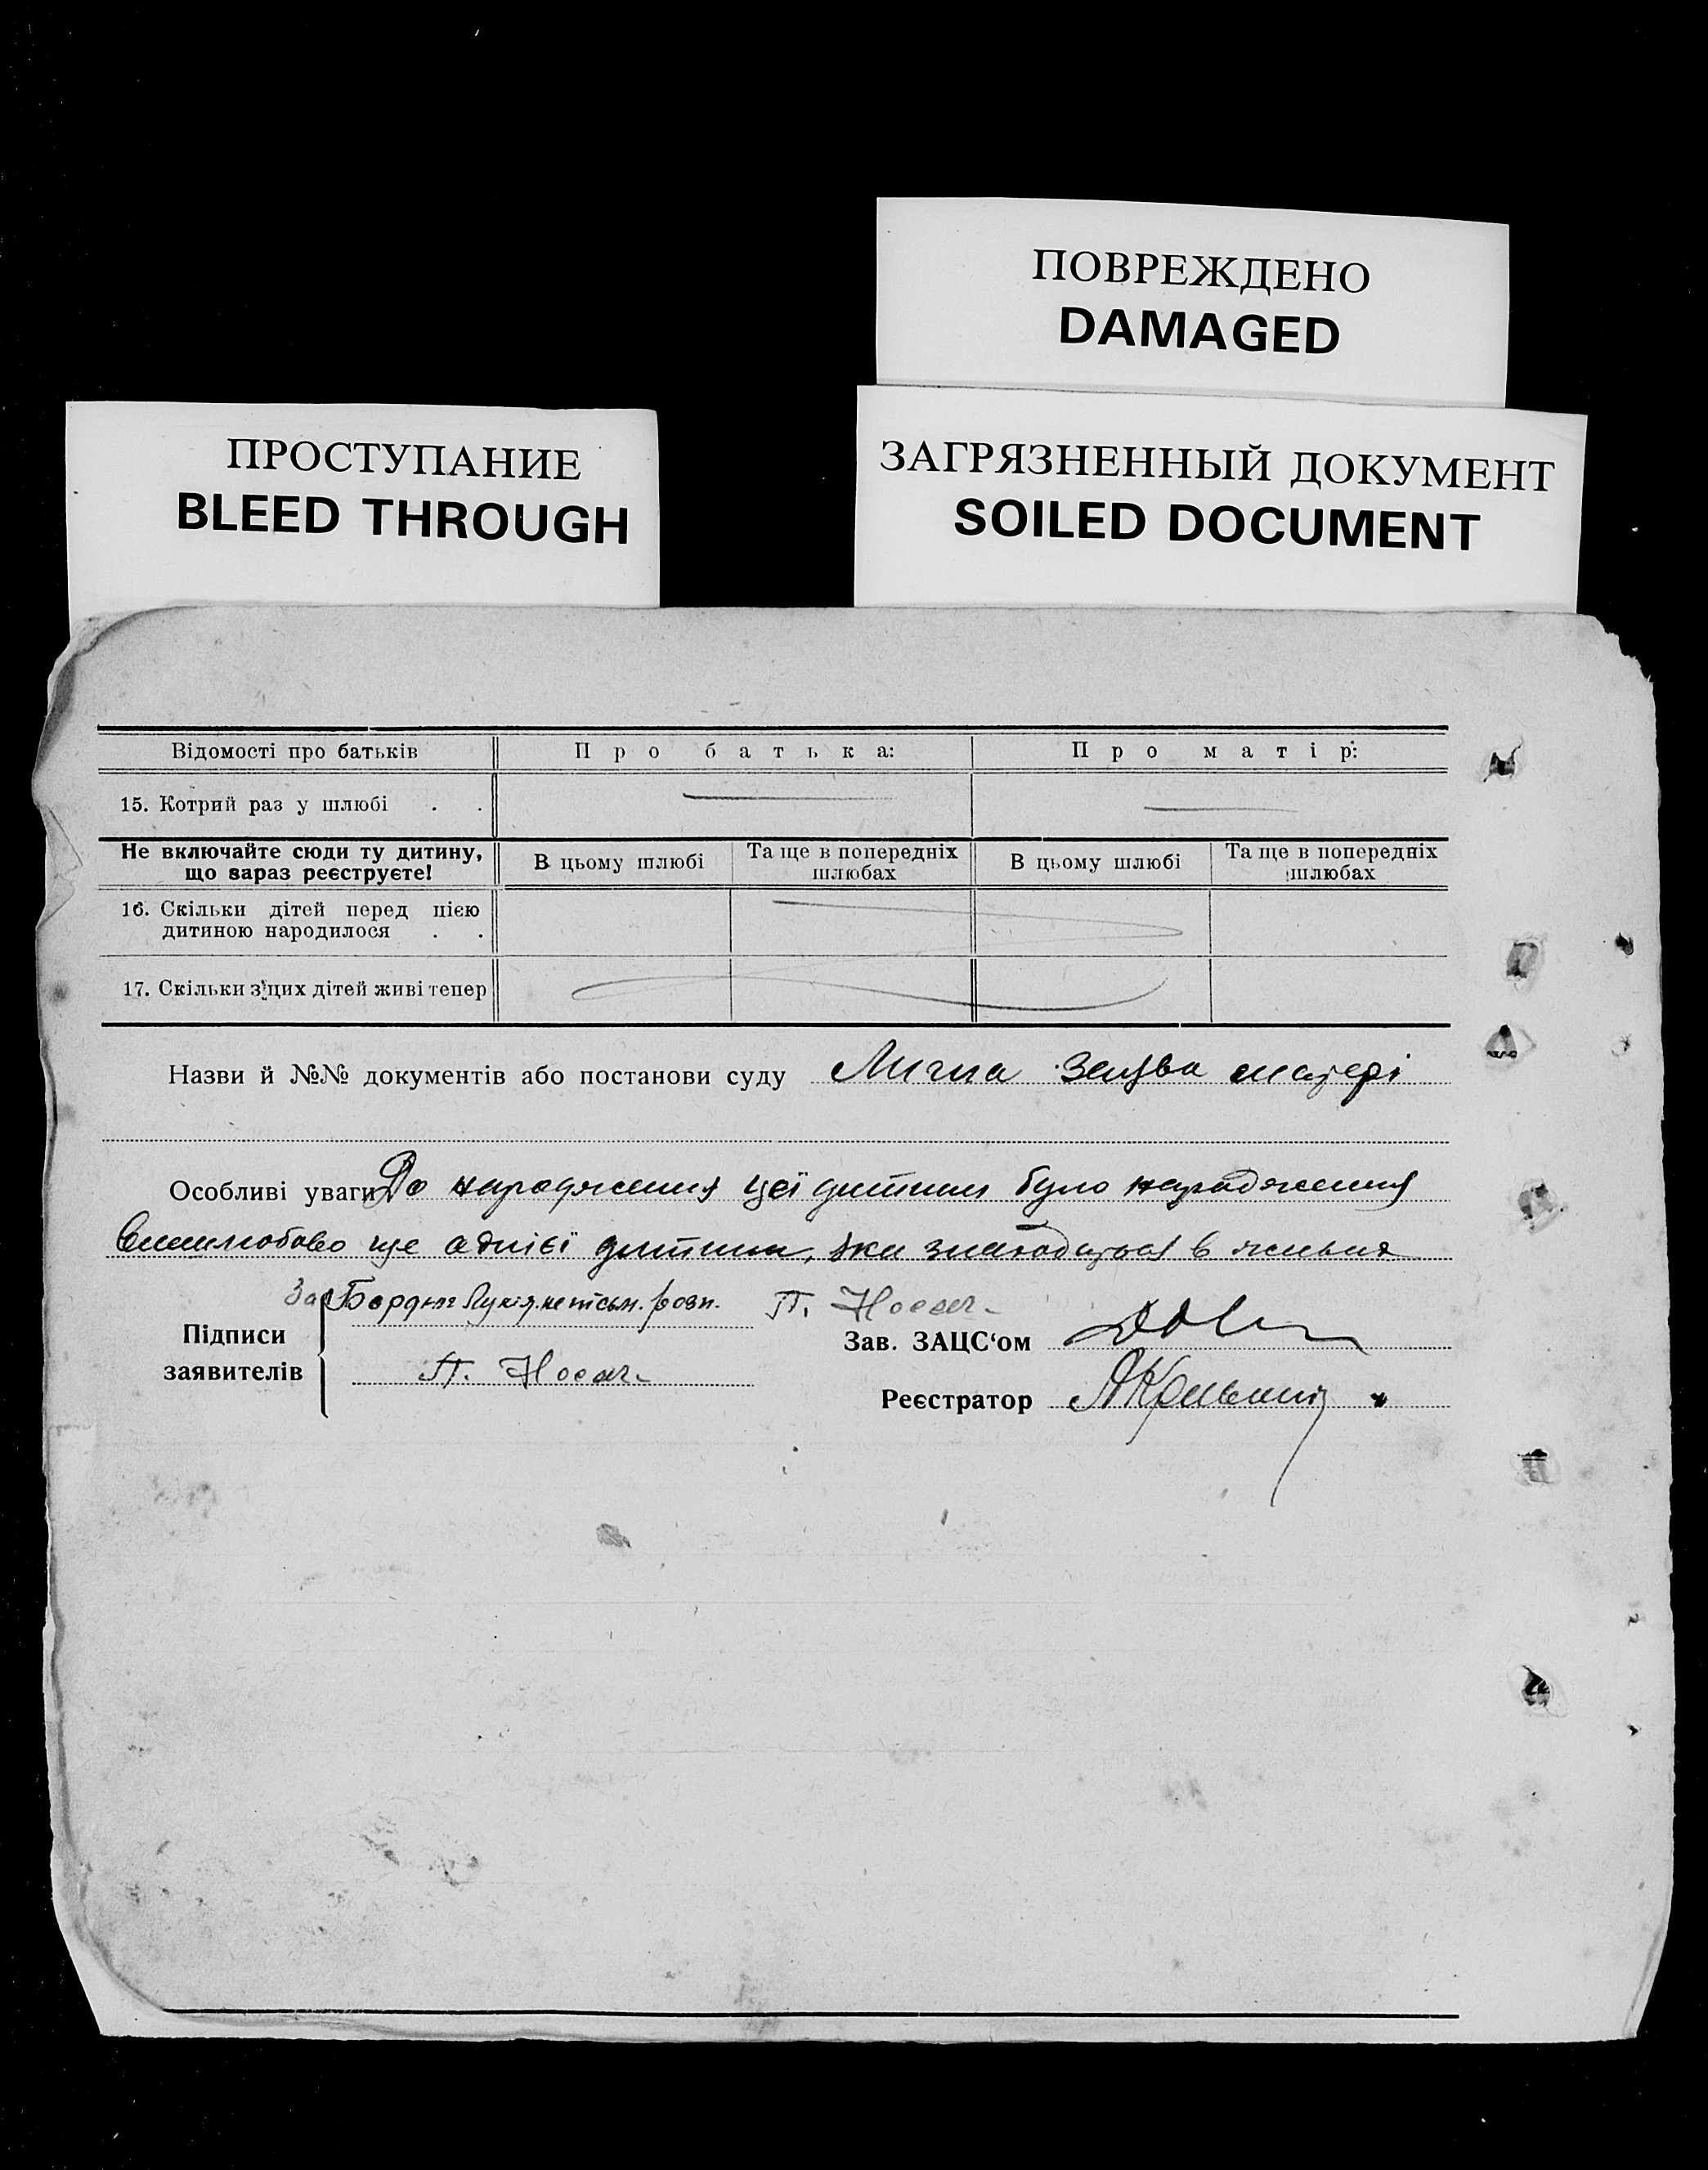 ПОВРЕЖДЕНО
DAMAGED
ПРОСТУПАНИЕ
BLEED THROUGH
ЗАГРЯЗНЕННЫЙ ДОКУМЕНТ
SOILED DOCUMENT
Відомості про батьків Про батька: Про матір:
15. Котрий раз у шлюбі . .
Не включайте сюди ту дитину, що зараз реєструєте! В цьому шлюбі Та ще в попередніх шлюбах В цьому шлюбі Та ще в попередніх шлюбах
16. Скільки дітей перед цією
дитиною народилося . .
17. Скільки з цих дітей живі тепер
Назви й №№ документів або постанови суду Лична заява матері
Особливі уваги До народження цєї дитини було народження
внешлюбово ще однієї дитини, яка знаходиться в живих
За неписьм. розп. П. Носач
Підписи заявителів П. Носач
Зав. ЗАЦС'ом
Реєстратор